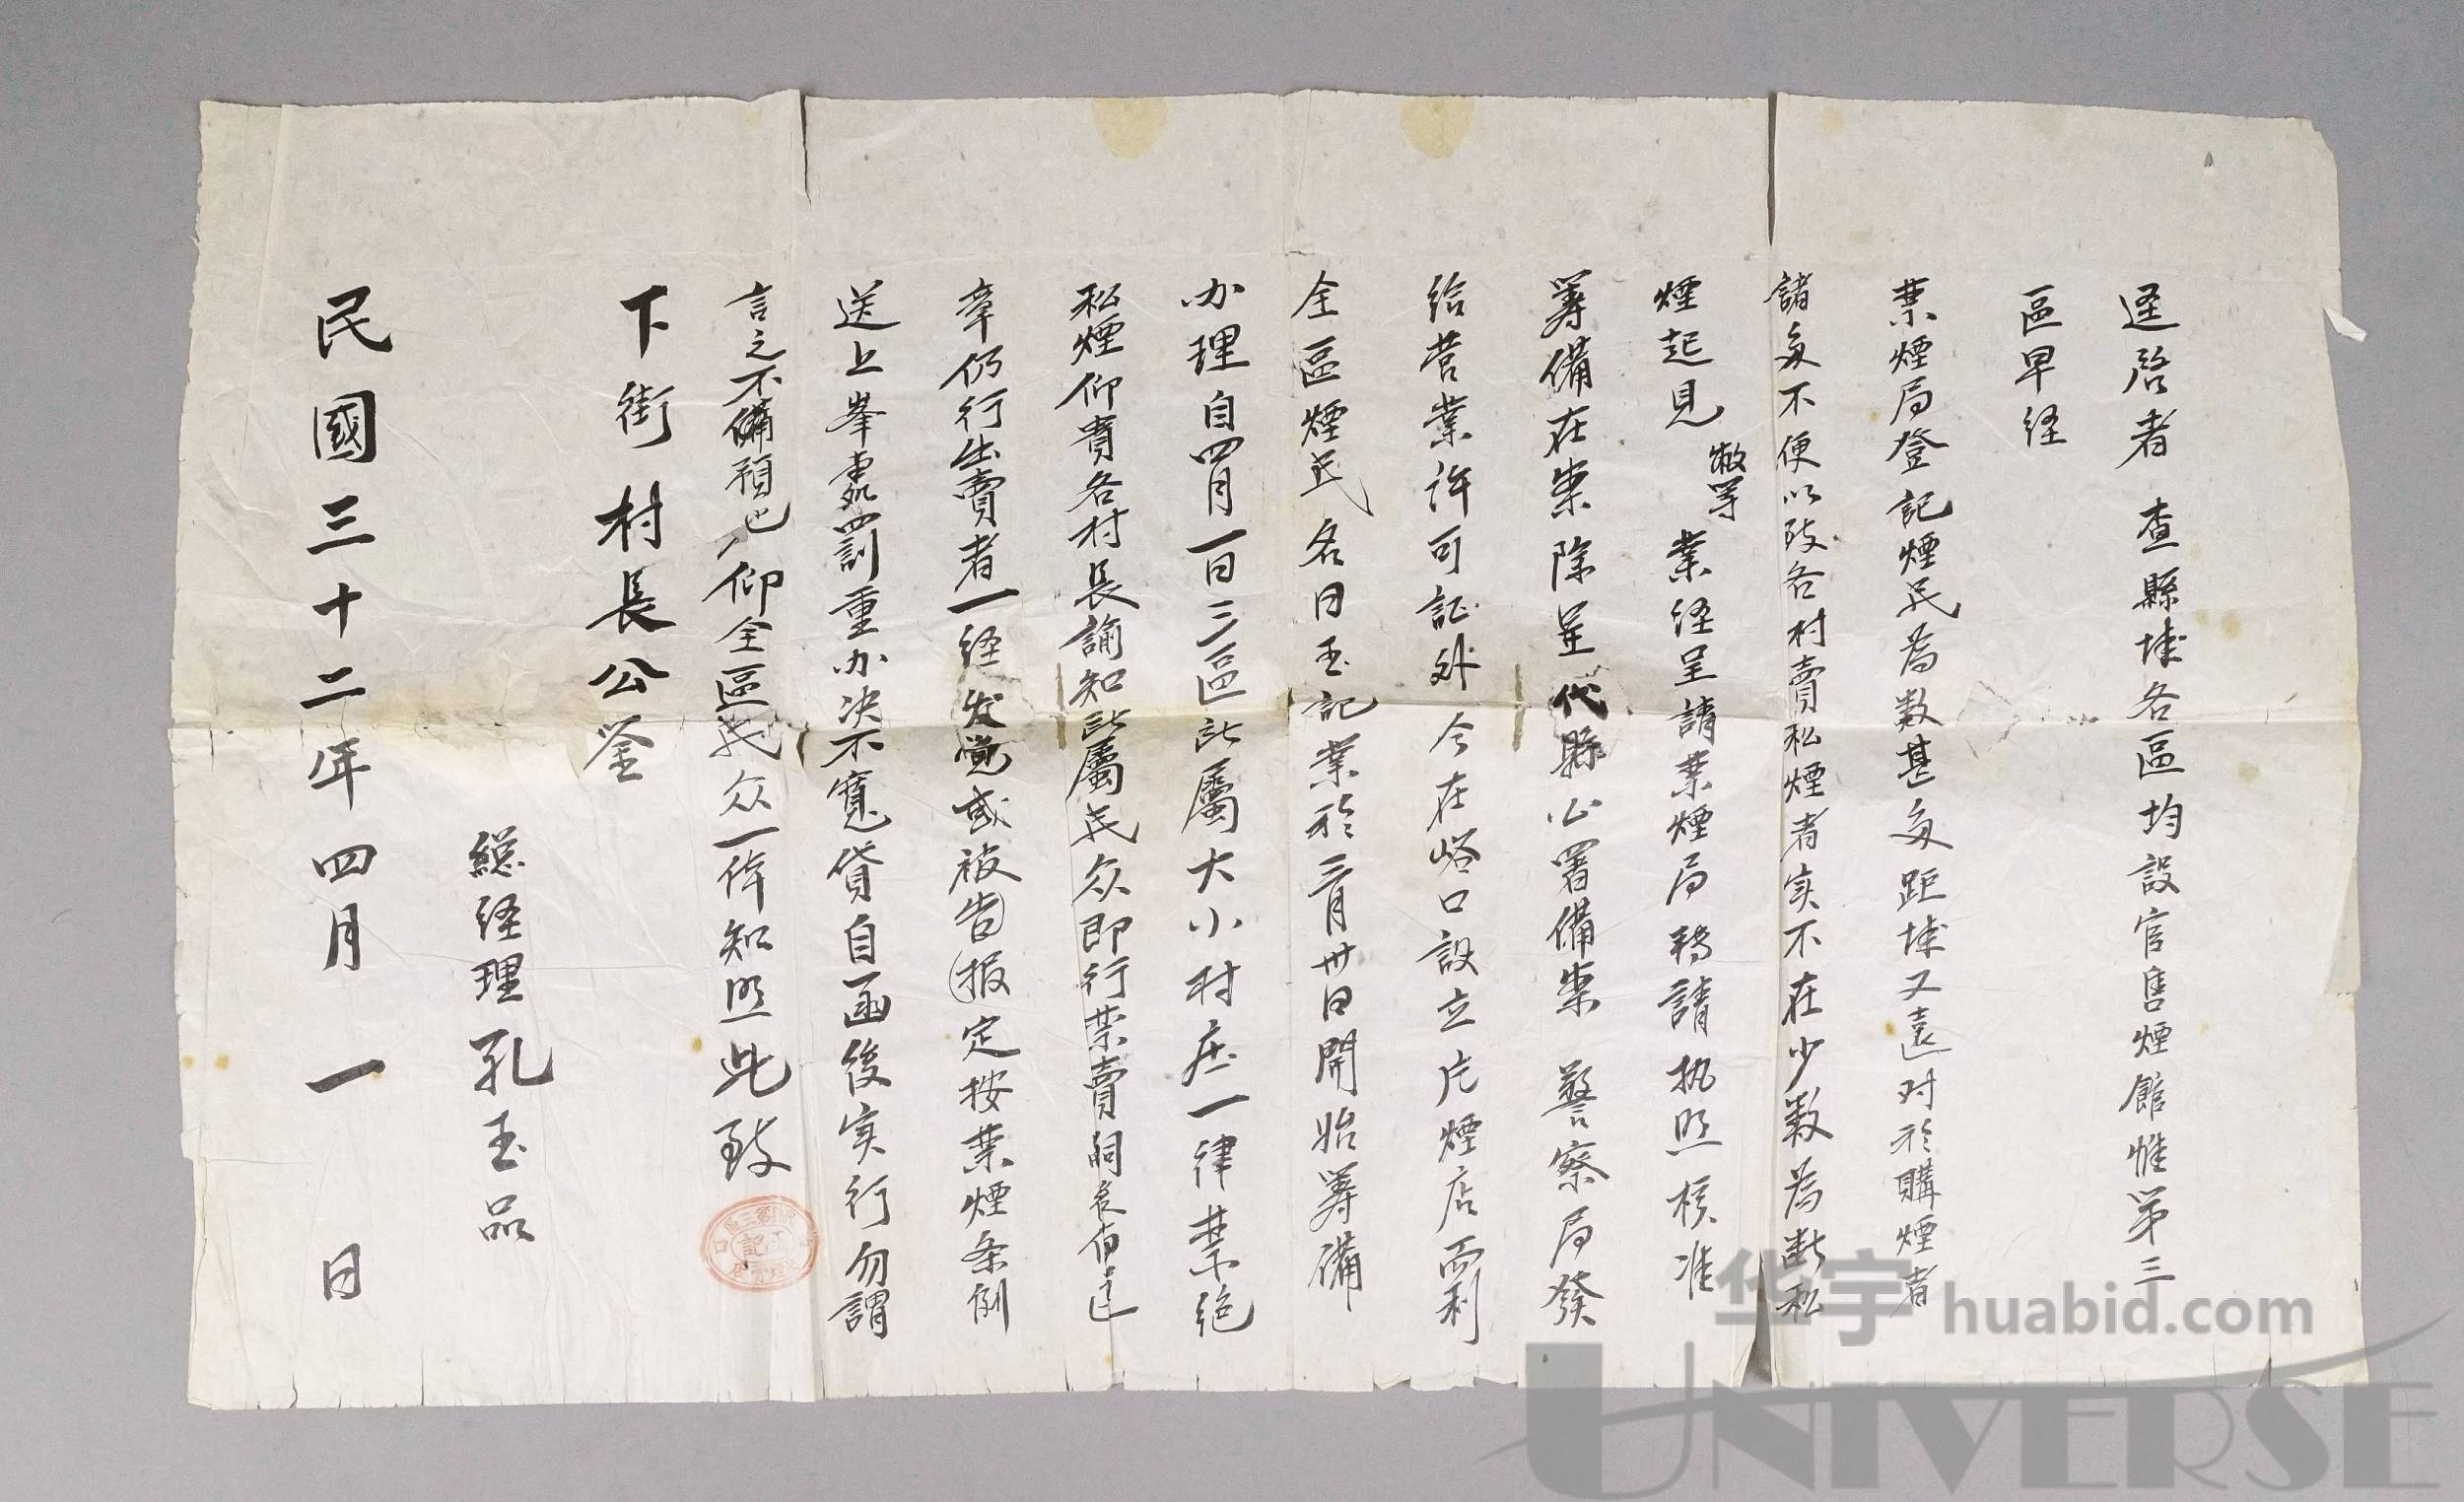 逕啓者 查縣城各區均設官售煙館惟第三
區早经
禁煙局登記煙民為数甚多距城又遠对於購煙者
諸多不便以致各村賣私煙者实不在少数為断私
煙起見 敝等 業经呈請禁煙局轉請执照核准
筹備在案除呈代縣公署備案 警察局發
给营業许可証外今在峪口設立戽煙店而利
全區煙民名曰玉記業於三月卅日開始筹備
办理自四月一日三區所屬大小村庄一律禁绝
私煙仰貴各村長諭知所屬民众即行禁賣嗣後有違
章仍行出賣者一经发觉或被告报定按禁煙条例
送上峯處罰重办决不寬貸自函後实行勿謂
言之不備預也仰全區民众一体知照此致
下街村長公鉴
総经理孔玉品
民國三十二年四月一日
华宇 huabid.com
UNIVERSE